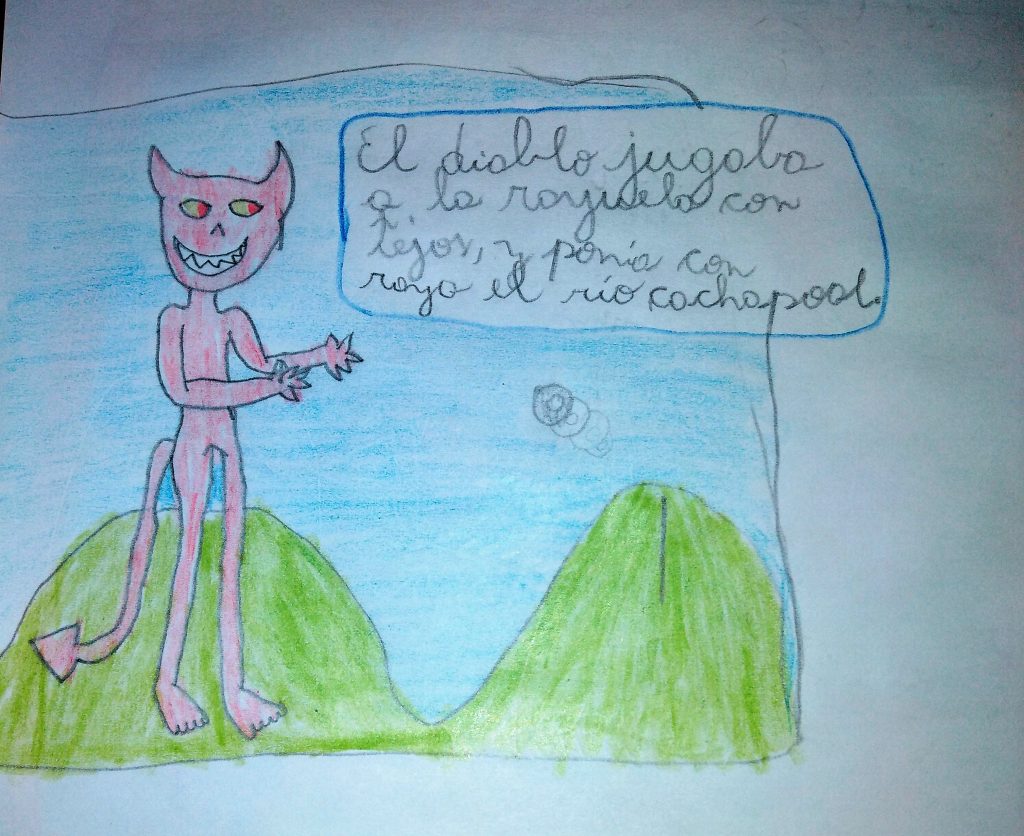 El diablo jugaba
a la rayuela con
tejos, y ponía con
raya el río cachapoal.